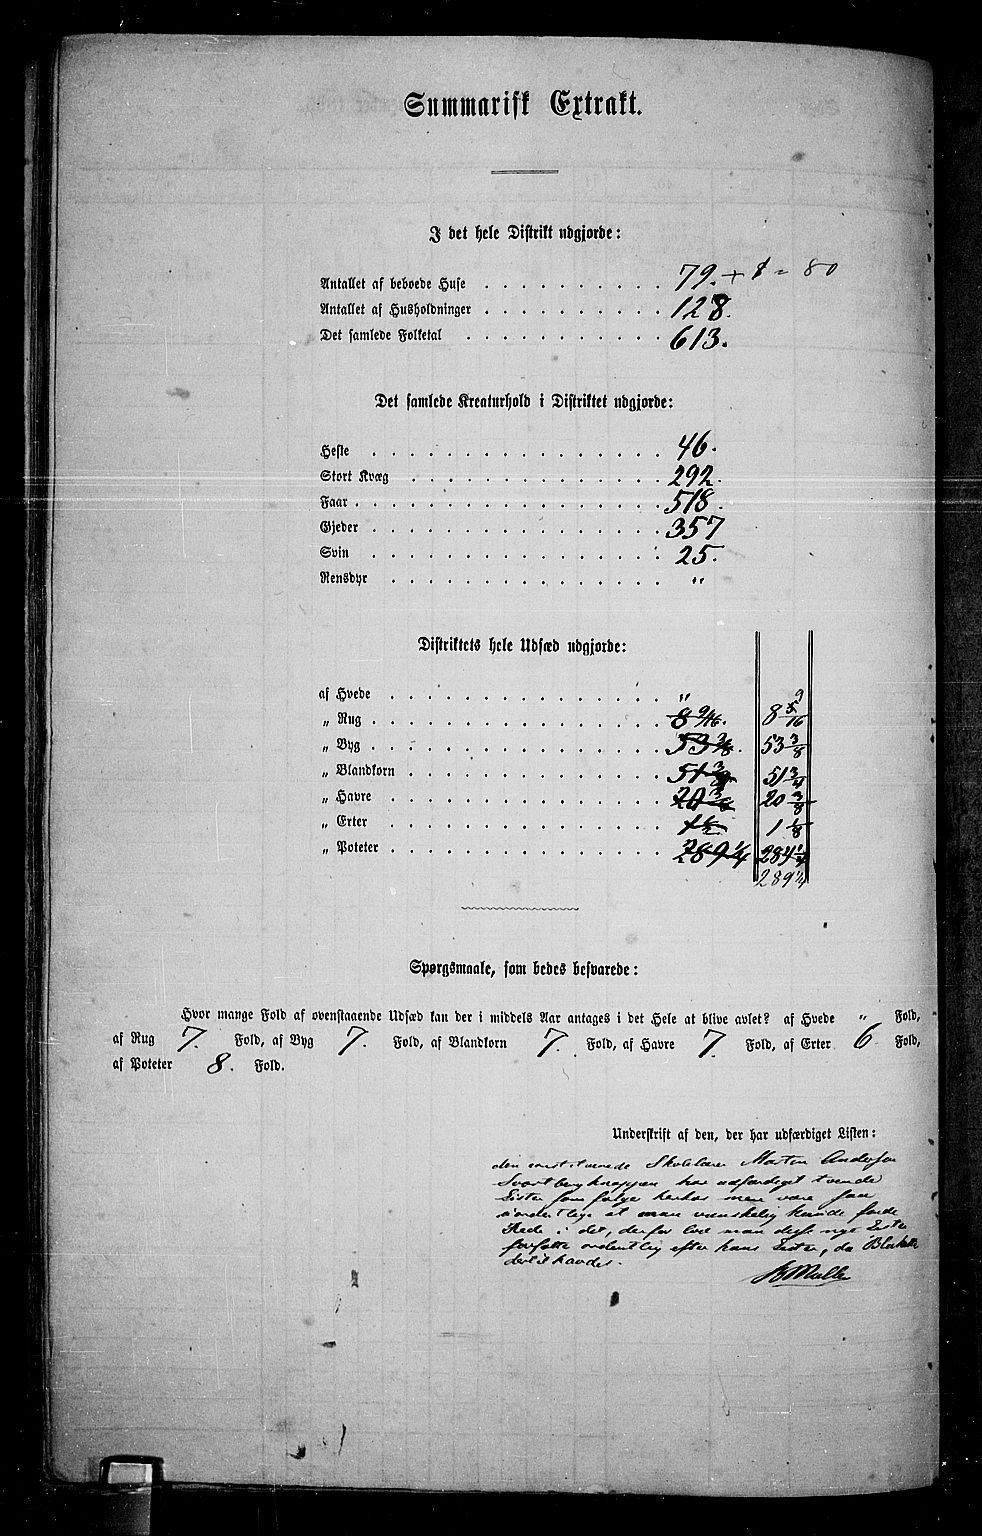 Summarisk Extrakt.
I det hele Distrikt udgjorde:
Antallet af beboede Huse . . . . . . . . . . 79. + 1 = 80
Antallet af Husholdninger . . . . . . . . . . 128.
Det samlede Folketal . . . . . . . . . . . 613.
Det samlede Kreaturhold i Distriktet udgjorde:
Heste . . . . . . . . . . . . . . . 46.
Stort Kvæg . . . . . . . . . . . . . 292.
Faar . . . . . . . . . . . . . . . . 518.
Gjeder . . . . . . . . . . . . . . . 357
Svin . . . . . . . . . . . . . . . . 25.
Rensdyr . . . . . . . . . . . . . . "
Distriktets hele Udsæd udgjorde:
af Hvede . . . . . . . . . . . . . . "
„ Rug . . . . . . . . . . . . . . . 8 9/16. 8 9/16
„ Byg . . . . . . . . . . . . . . . 53 3/8. 53 3/8
„ Blandkorn . . . . . . . . . . . . 51 3/4 51 3/4
„ Havre . . . . . . . . . . . . . . 20 3/8 20 3/8
„ Erter . . . . . . . . . . . . . . 1 1/8
„ Poteter . . . . . . . . . . . . . 289 1/4 284 1/4
289 1/4
Spørgsmaale, som bedes besvarede:
Hvor mange Fold af ovenstaaende Udsæd kan der i middels Aar antages i det Hele at blive avlet? af Hvede " Fold,
af Rug 7. Fold, af Byg 7. Fold, af Blandkorn 7. Fold, af Havre 7. Fold, af Erter 6 Fold,
af Poteter 8. Fold.
Underskrift af den, der har udfærdiget Listen:
den constituerede Skolelærer Morten Andersen
Svartbergknappen har udfærdiget tvende
Lister som følge herhos men vare saa
uordentlige at man vanskelig kunde finde
Rede i det, derfor lod man disse nye Lister
forfatte ordentlig efter hans Lister, da Blanketter
dertil havdes.